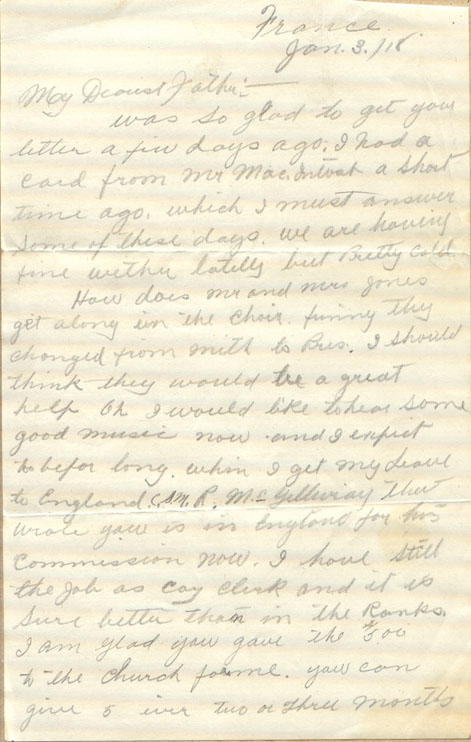 France
Jan. 3./18.
My Dearest Father:—
was so glad to get your
letter a fiw days ago. I had a
card from Mr Mac.Intosh a short
time ago. which I must answer
some of these days. we are having
fine wether latelly but Pretty Cold.
How does mr and mrs Jones
get along iin the Choir. funny they
changed from Mith to Pres. I should
think they would be a great
help Oh I would like to hear some
good music now and I expect
to befor long. whin I get my leave
to England. R. McGillivray that
wrote yow is in England for his
Commission now. I have still
the Job as coy clerk and it is
Sure better than in the Ranks.
I am glad yow gave the $5.00
to the Church for me. yow can
give 5 iver two or three months